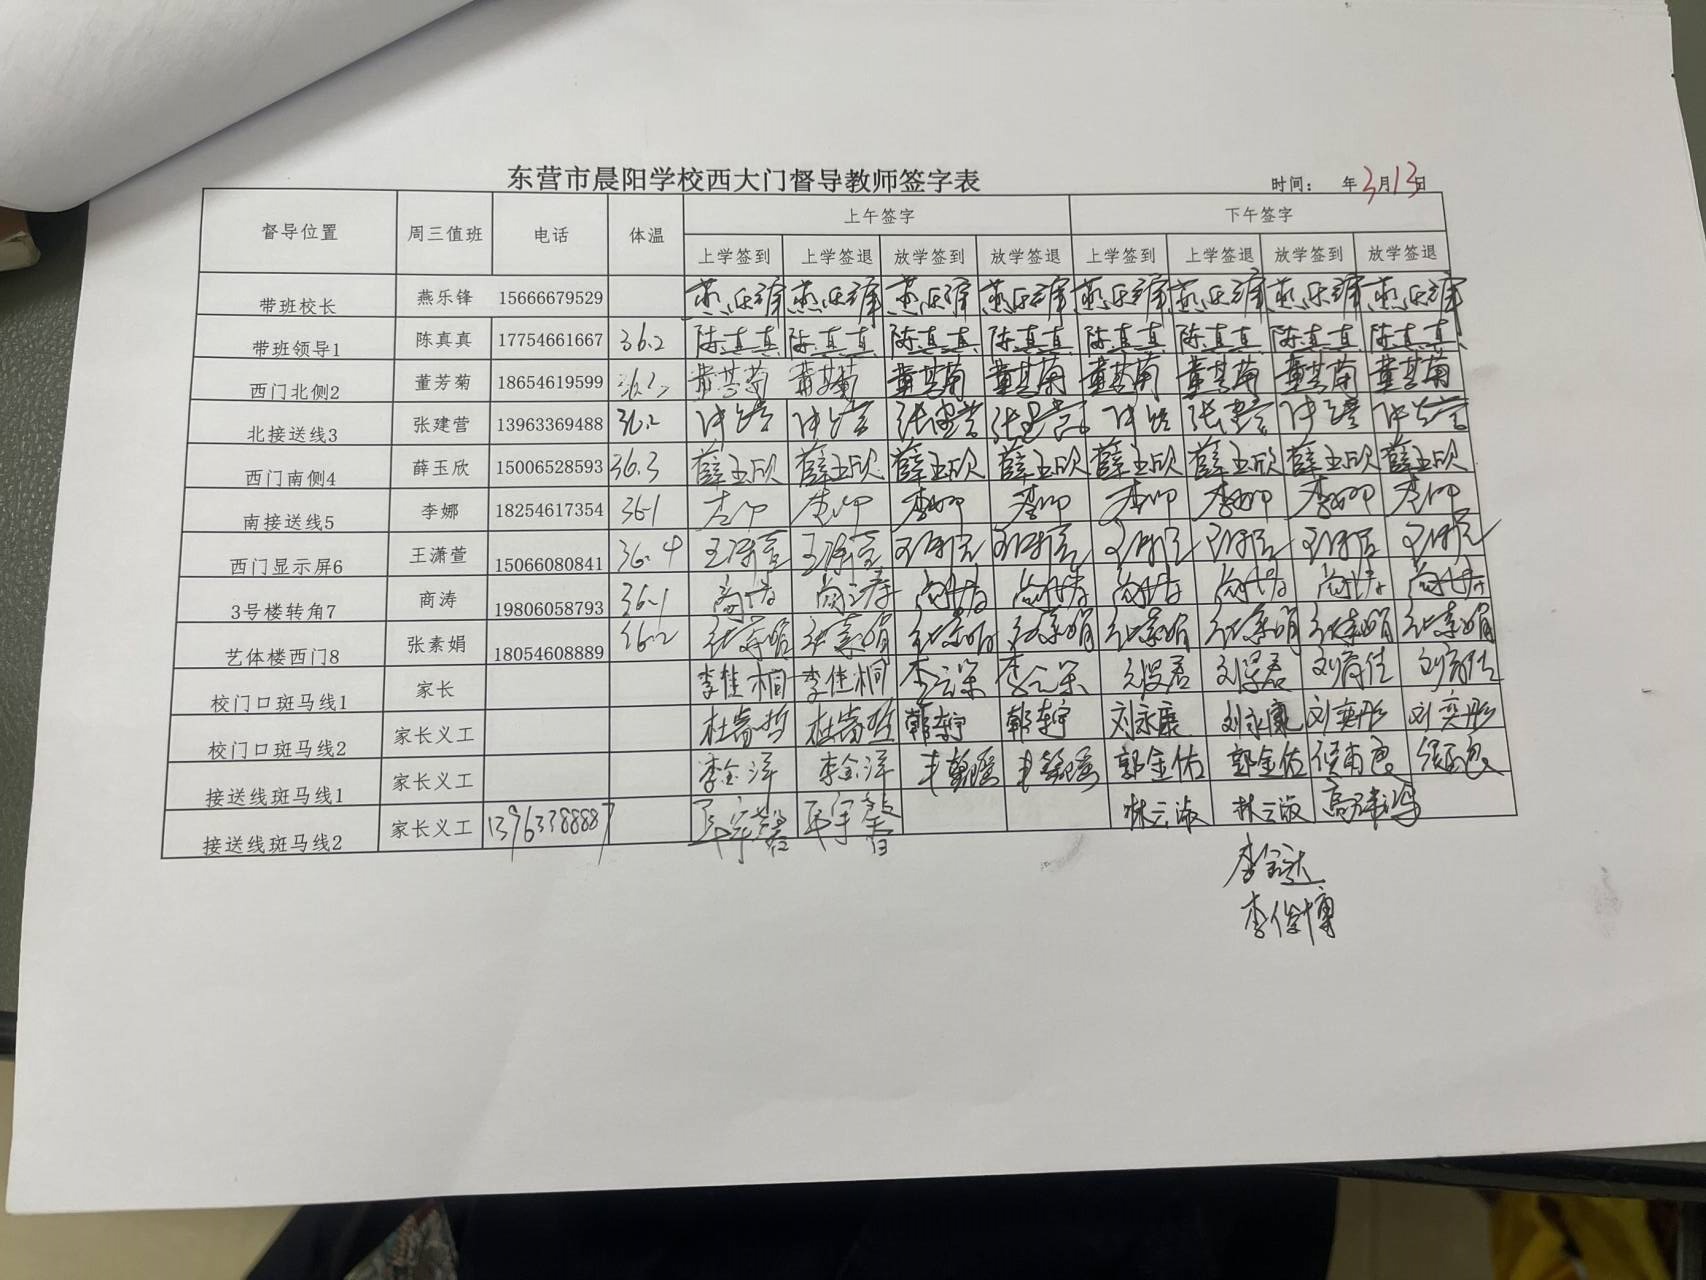 东营市晨阳学校西大门督导教师签字表
时间： 年3月13日
督导位置 周三值班 电话 体温 上午签字 下午签字
上学签到 上学签退 放学签到 放学签退 上学签到 上学签退 放学签到 放学签退
带班校长 燕乐锋 15666679529 燕乐锋 燕乐锋 燕乐锋 燕乐锋 燕乐锋 燕乐锋 燕乐锋 燕乐锋
带班领导1 陈真真 17754661667 36.2 陈真真 陈真真 陈真真 陈真真 陈真真 陈真真 陈真真 陈真真
西门北侧2 董芳菊 18654619599 36.2 董芳菊 董芳菊 董芳菊 董芳菊 董芳菊 董芳菊 董芳菊 董芳菊
北接送线3 张建营 13963369488 36.2 张建营 张建营 张建营 张建营 张建营 张建营 张建营 张建营
西门南侧4 薛玉欣 15006528593 36.3 薛玉欣 薛玉欣 薛玉欣 薛玉欣 薛玉欣 薛玉欣 薛玉欣 薛玉欣
南接送线5 李娜 18254617354 36.1 李娜 李娜 李娜 李娜 李娜 李娜 李娜 李娜
西门显示屏6 王潇萱 15066080841 36.4 王潇萱 王潇萱 王潇萱 王潇萱 王潇萱 王潇萱 王潇萱 王潇萱
3号楼转角7 商涛 19806058793 36.1 商涛 商涛 商涛 商涛 商涛 商涛 商涛 商涛
艺体楼西门8 张素娟 18054608889 36.2 张素娟 张素娟 张素娟 张素娟 张素娟 张素娟 张素娟 张素娟
校门口斑马线1 家长 李佳桐 李佳桐
校门口斑马线2 家长义工 杜睿哲 杜睿哲 刘永康 刘永康 刘奕彤 刘奕彤
接送线斑马线1 家长义工 李金洋 李金洋 郭金佑 郭金佑
接送线斑马线2 家长义工 13963388887 林云淑 林云淑
李俊博